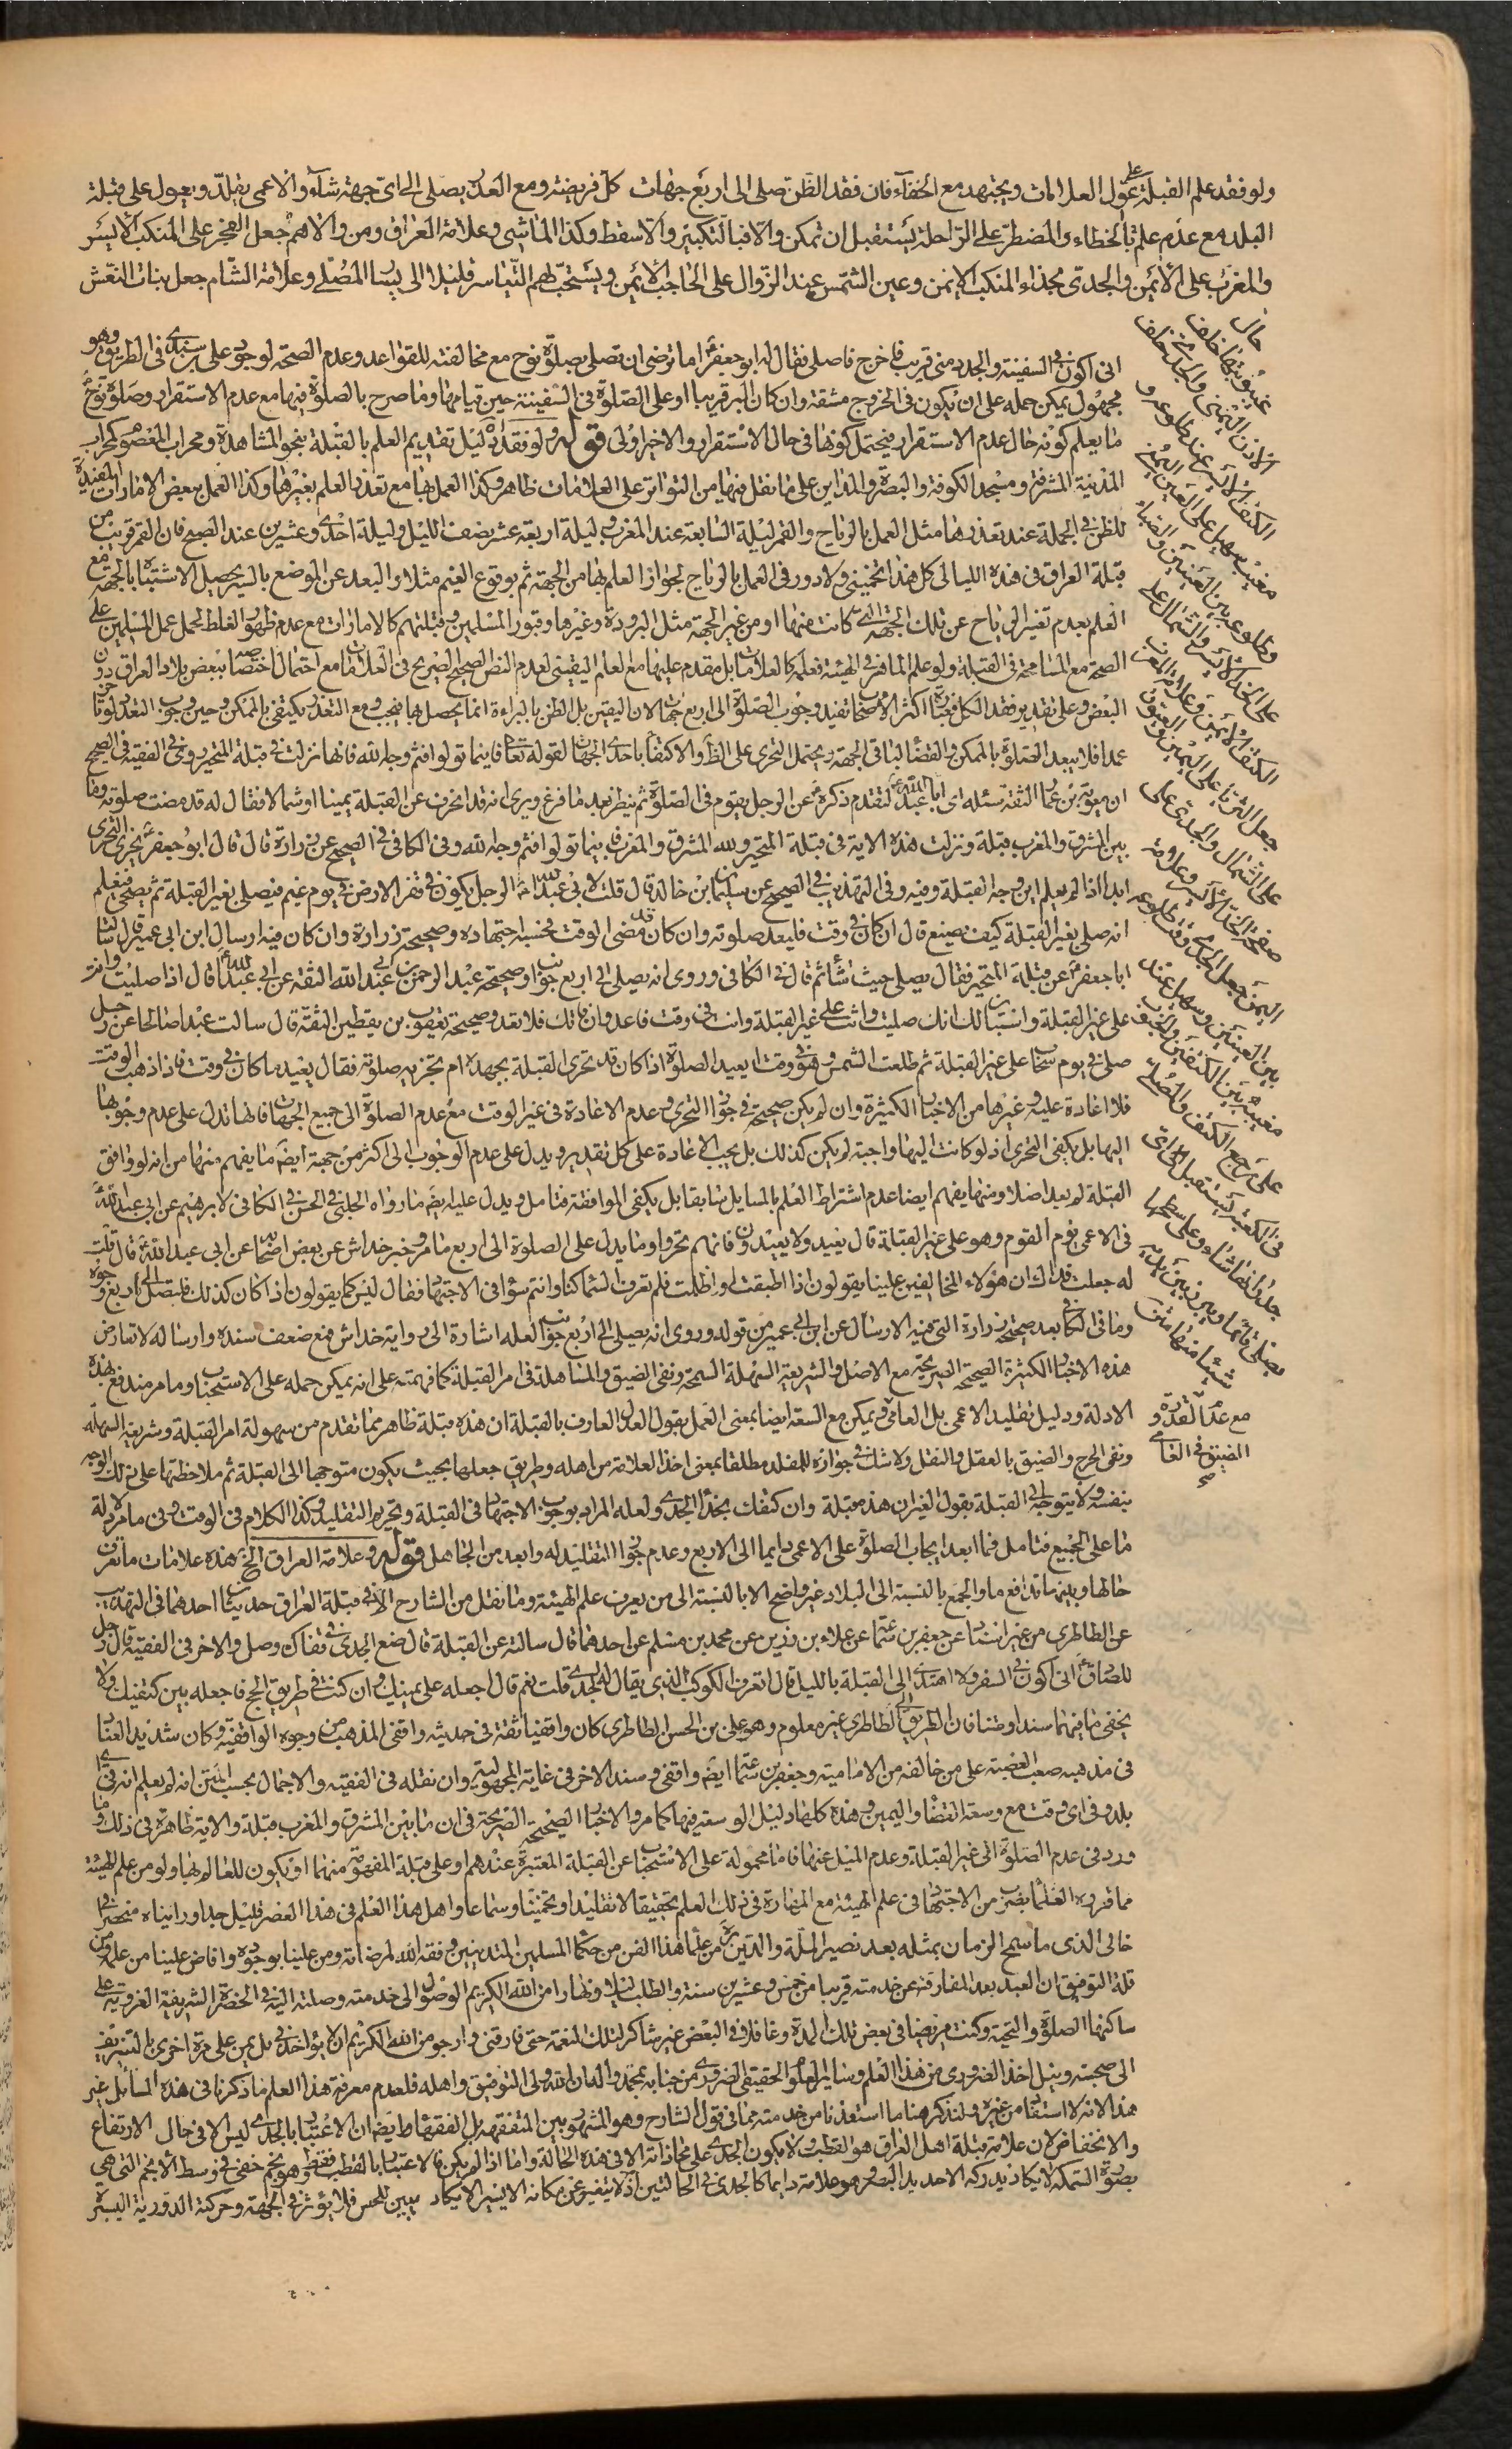 ولو فقد علم القبلة عول على العلامات ويجتهد مع الخفآء فان فقد الظن صلى الى اربع جهات كل فريضة ومع العذر يصلى الى اى جهة شآء والاعمى يقلد ويعول على قبلة
البلد مع عدم علم بالخطاء والمضطر على الراحلة يستقبل ان تمكن والا فبالتكبير والا سقط وكذا الماشى وعلامة العراق ومن والاهم جعل الفجر على المنكب الايسر
والمغرب على الايمن والجدى بحذاء المنكب الايمن وعين الشمس عند الزوال على الحاجب الايمن ويستحب لهم التياسر قليلا الى يسار المصلى وعلامة الشام جعل بنات النعش
حال
غيبوبتها خلف
الاذن اليمنى والجدى خلف
الكتف الايسر عند طلوعه و
مغيب سهيل على العين اليمنى
وطلوعه بين العينين والصبا
على الخد الايسر والشمال على
الكتف الايمن وعلامة المغرب
جعل الثريا على اليمين والعيوق
على الشمال والجدى على
صفحة الخد الايسر وعلامة
اليمن جعل الجدى وقت طلوعه
بين العينين وسهيل عند
مغيبه بين الكتفين والجنوب
على مرجع الكتف والمصلى
فى الكعبة يستقبل اى
جدرانها شاء وعلى سطحها
يصلى قائما ويبرز بين يديه
شيئا منها
انى اكون فى السفينة والجدد منى قريب فاخرج فاصلى فقال له ابو جعفر اما ترضى ان تصلى بصلوة نوح مع مخالفته للقواعد وعدم الصحة لوجود على بن سندى فى الطريق وهو
مجهول يمكن حمله على ان يكون فى الخروج مشقة وان كان البر قريبا او على الصلوة فى السفينة حين قيامها وما صرح بالصلوة فيها مع عدم الاستقرار وصلوة نوح
ما يعلم كونه حال عدم الاستقرار فيحتمل كونها فى حال الاستقرار والاخير اولى قوله ولو فقد دليل تقديم العلم بالقبلة بنحو المشاهدة ومحراب المعصوم كمحراب
المدينة المشرفة ومسجد الكوفة والبصرة والمداين على ما نقل فيها من التواتر على العلامات ظاهر وكذا العمل بها مع تعذر العلم بغيرها وكذا العمل ببعض الامارات المفيدة
للظن فى الجملة عند تعذرها مثل العمل بالرياح والقمر ليلة السابعة عند المغرب وليلة اربعة عشر نصف الليل وليلة احدى وعشرين عند الصبح فان القمر قريب من
قبلة العراق فى هذه الليالى كل هذا تخمينى ولا دور فى العمل بالرياح لجواز العلم بها من الجهة ثم بوقوع الغيم مثلا والبعد عن الموضع بالسير يحصل الاشتباه بالجهة مع
العلم بعدم تغير الرياح عن تلك الجهة التى كانت فيها او من غير الجهة مثل البرودة وغيرها وقبور المسلمين وقبلتهم كالامارات مع عدم ظهور الغلط لحمل عمل المسلمين على
الصحة مع المسامحة فى القبلة ولو علم المسافر فى الهيئة فعلمه كالعلامات بل مقدم عليها مع العلم اليقينى لعدم النص الصحيح الصريح فى العلامات مع احتمال اختصاصها ببعض بلاد العراق دون
البعض وعلى تقدير فقد الكل فعبارة اكثر الاصحاب تفيد وجوب الصلوة الى اربع جهات لان اليقين بل الظن بالبراءة انما يحصل بها فيجب ومع التعذر يكتفى بالممكن وحين وجوب التعدد لو تأخر
عمدا فلا يبعد الصلوة بالممكن والقضاء لباقى الجهة ويحتمل التحرى على الظن والاكتفاء باحدى الجهات لقوله تعالى فاينما تولوا فثم وجه الله فانها نزلت فى قبلة المتحير وفى الفقيه فى الصحيح
ان معوية بن عمار الثقة سئله اى ابا عبد الله لتقدم ذكره عن الرجل يقوم فى الصلوة ثم ينظر بعد ما فرغ ويرى انه قد انحرف عن القبلة يمينا او شمالا فقال له قد مضت صلوته وما
بين المشرق والمغرب قبلة ونزلت هذه الاية فى قبلة المتحير ولله المشرق والمغرب فاينما تولوا فثم وجه الله وفى الكافى فى الصحيح عن زرارة قال قال ابو جعفر يجزى التحرى
ابدا اذا لم يعلم اين وجه القبلة وفيه وفى التهذيب فى الصحيح عن سليمان بن خالد قال قلت لابى عبد الله الرجل يكون فى قفر الارض فى يوم غيم فيصلى بغير القبلة ثم يصحى فيعلم
انه صلى بغير القبلة كيف يصنع قال ان كان فى وقت فليعد صلوته وان كان قد مضى الوقت فحسبه اجتهاده وصحيحة زرارة وان كان فيه ارسال ابن ابى عمير قال سالت
ابا جعفر عن قبلة المتحير فقال يصلى حيث شاء ثم قال فى الكافى وروى انه يصلى الى اربع جوانب وصحيحة عبد الرحمن بن ابى عبد الله الثقة عن ابى عبد الله قال اذا صليت وانت
على غير القبلة واستبان لك انك صليت وانت على غير القبلة وانت فى وقت فاعد وان فاتك فلا تعد وصحيحة يعقوب بن يقطين الثقة قال سالت عبدا صالحا عن رجل
صلى فى يوم سحاب على غير القبلة ثم طلعت الشمس وهو فى وقت ايعيد الصلوة اذا كان قد تحرى القبلة بجهده ام تجزيه صلوته فقال يعيد ما كان فى وقت فاذا ذهب الوقت
فلا اعادة عليه وغيرها من الاخبار الكثيرة وان لم يكن صحيحة فى جواز التحرى وعدم الاعادة فى غير الوقت مع عدم الصلوة الى جميع الجهات فانها تدل على عدم وجوبها
اليها بل يكفى التحرى اذ لو كانت اليها واجبة لم يكن كذلك بل يجب الاعادة على كل تقدير ويدل على عدم الوجوب الى اكثر من جهة ايضا ما يفهم منها من انه لو وافق
القبلة لم يعد اصلا ومنها يفهم ايضا عدم اشتراط العلم بالمسايل سابقا بل يكفى الموافقة فتامل ويدل عليه ايضا ما رواه الحلبى فى الحسن فى الكافى لابرهيم عن ابى عبد الله
فى الاعمى يؤم القوم وهو على غير القبلة قال يعيد ولا يعيدون فانهم تحروا وما يدل على الصلوة الى اربع ما مر وخبر خداش عن بعض اصحابنا عن ابى عبد الله قال قلت
له جعلت فداك ان هؤلاء المخالفين علينا يقولون اذا اطبقت او اظلمت فلم تعرف السماء كنا وانتم سواء فى الاجتهاد فقال ليس كما يقولون اذا كان كذلك فليصل الى اربع وجوه
وما فى الكافى بعد صحيحة زرارة التى فيه الارسال عن ابن ابى عمير من قوله وروى انه يصلى الى اربع جوانب لعله اشارة الى رواية خداش فمع ضعف سنده وارساله لا تعارض
هذه الاخبار الكثيرة الصحيحة الصريحة مع الاصل والشريعة السهلة السمحة ونفى الضيق والمساهلة فى امر القبلة كما فهمته على انه يمكن حمله على الاستحباب وما مر مندفع بهذه
الادلة ودليل تقليد الاعمى بل العامى ويمكن مع السعة ايضا بمعنى العمل بقول العدل العارف بالقبلة ان هذه قبلة ظاهر مما تقدم من سهولة امر القبلة وشريعة السهلة
مع عدم القدرة و
الضيق فى العامى
صح
ونفى الحرج والضيق بالعقل والنقل ولا شك فى جوازه للمقلد مطلقا بمعنى اخذ العلامة من اهله وطريق جعلها بحيث يكون متوجها الى القبلة ثم ملاحظتها على ذلك الوجه
بنفسه ولا يتوجه الى القبلة بقول الغير ان هذه قبلة وان كتفك بحذاء الجدى ولعله المراد بوجوب الاجتهاد فى القبلة وتحريم التقليد وكذا الكلام فى الوقت وفى ما مر دلالة
ما على الجميع فتامل فما ابعد ايجاب الصلوة على الاعمى دايما الى الاربع وعدم جواز التقليد له وابعد من الجاهل قوله وعلامة العراق الخ هذه علامات ما نعرف
حالها وبينها تدافع ما والجمع بالنسبة الى البلاد غير واضح الا بالنسبة الى من يعرف علم الهيئة وما نقل من الشارح الا فى قبلة العراق حديثان احدهما فى التهذيب
عن الطاطرى من غير اسناد عن جعفر بن سماعة عن علاء بن رزين عن محمد بن مسلم عن احدهما قال سالته عن القبلة قال ضع الجدى فى قفاك وصل والاخر فى الفقيه قال رجل
للصادق انى اكون فى السفر ولا اهتدى الى القبلة بالليل قال اتعرف الكوكب الذى يقال له الجدى قلت نعم قال اجعله على يمينك وان كنت فى طريق الحج فاجعله بين كتفيك ولا
يخفى ما فيهما سندا ومتنا فان الطريق الى الطاطرى غير معلوم وهو على بن الحسن الطاطرى كان واقفيا ثقة فى حديثه واقفى المذهب من وجوه الواقفية وكان شديد العناد
فى مذهبه صعب العصبية على من خالفه من الامامية وجعفر بن سماعة ايضا واقفى وسند الاخر فى غاية المجهولية وان نقله فى الفقيه والاجمال بحسب المتن انه لم يعلم انه فى اى
بلد وفى اى وقت مع وسعة القفا واليمين وهذه كلها دليل الوسعة فيها كما مر والاخبار الصحيحة الصريحة فى ان ما بين المشرق والمغرب قبلة والاية ظاهرة فى ذلك وما
ورد فى عدم الصلوة الى غير القبلة وعدم الميل عنها فاما محمولة على الاستحباب عن القبلة المعتبرة عندهم او على قبلة المفهومة منهما او يكون للعالم بها ولو من علم الهيئة
مما قرره العلماء بضرب من الاجتهاد فى علم الهيئة مع المهارة فى ذلك العلم تحقيقا لا تقليدا وتخمينا وسماعا واهل هذا العلم فى هذا العصر قليل جدا وراينا منحصرا فى
خالى الذى ما سمح الزمان بمثله بعد نصير الملة والدين ره من علماء هذا الفن من حكماء المسلمين المتدينين وفقه الله لمرضاته ومن علينا بوجوده وافاض علينا من علمه ومن
قلة التوفيق ان العبد بعد المفارقة عن خدمته قريبا من خمس وعشرين سنة والطلب ليلا ونهارا من الله الكريم الوصول الى خدمته وصلت اليه فى الحضرة الشريفة الغروية على
ساكنها الصلوة والتحية وكنت مريضا فى بعض تلك المدة وغافلا فى البعض غير شاكر لتلك النعمة حتى فارقنى وارجو من الله الكريم ان لا يؤاخذنى بل يمن على مرة اخرى بالتشريف
الى صحبته ونيل اخذ الضرورى من هذا العلم وساير العلوم الحقيقى الضرورى من جنابه بمحمد واله ان الله ولى التوفيق واهله فلعدم معرفة هذا العلم ما ذكرنا فى هذه المسائل غير
هذا لانه لا استفاد من غيره ولنذكر هنا ما استفدنا من خدمته مما فى قول الشارح وهو المشهور بين المتفقهة بل الفقهاء ايضا ان الاعتبار بالجدى ليس الا فى حال الارتفاع
والانخفاض لان علامة قبلة اهل العراق هو القطب ولا يكون الجدى على محاذاته الا فى هذه الحالة واما اذا لم يكن فالاعتبار بالقطب فقط وهو نجم خفى فى وسط الانجم التى هى
بصورة السمكة لا يكاد يدركه الا حديد البصر وهو علامة دايما كالجدى فى الحالتين اذ لا يتغير عن مكانه الا يسيرا لا يكاد يبين للحس فلا يؤثر فى الجهة وحركته الدورية اليسيرة